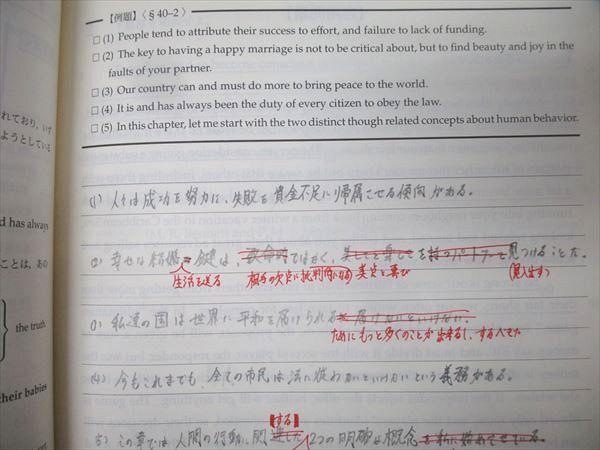 【例題】〈§ 40–2〉
□ (1) People tend to attribute their success to effort, and failure to lack of funding.
□ (2) The key to having a happy marriage is not to be critical about, but to find beauty and joy in the
faults of your partner.
□ (3) Our country can and must do more to bring peace to the world.
□ (4) It is and has always been the duty of every citizen to obey the law.
□ (5) In this chapter, let me start with the two distinct though related concepts about human behavior.
れており、いず
ようとしている
d has always
ことは、あの
the truth
heir babies
(1) 人々は成功を努力に、失敗を資金不足に帰属させる傾向がある。
(2) 幸せな結婚 鍵は、 ではなく、 を 見つけることだ。
生活を送る 相手の欠点に批判的になる 美点と喜び (見出す)
(3) 私達の国は世界に平和を届けられる
ためにもっと多くのことが出来るし、するべきだ
(4) 今もこれまでも、全ての市民は法に従わないといけないという義務がある。
する
(5) この章では人間の行動に関 2つの明確な概念